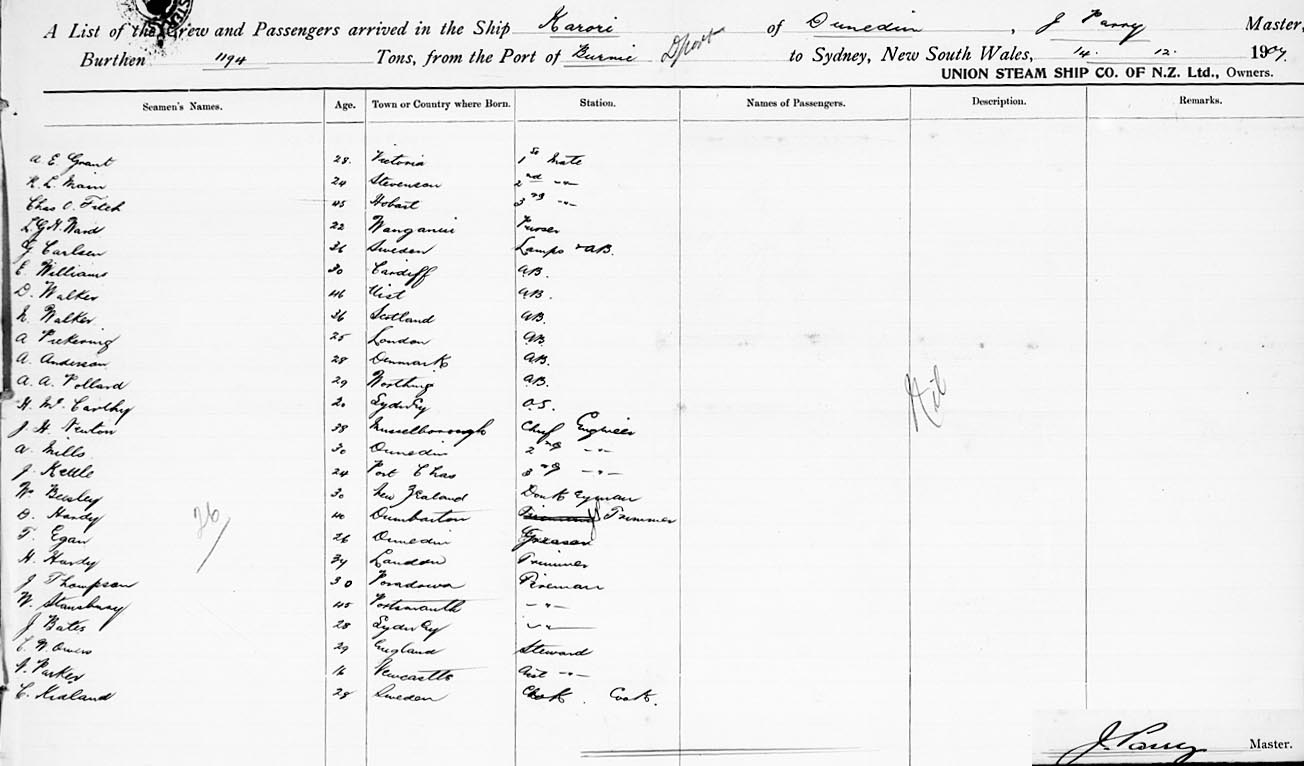 A List of the Crew and Passengers arrived in the Ship Karori of Dunedin, J Parry Master,
Burthen 1194 Tons, from the Port of Burnie Dport to Sydney, New South Wales, 14. 12. 1907.
UNION STEAM SHIP CO. OF N.Z. Ltd., Owners.
Seamen's Names. Age. Town or Country where Born. Station. Names of Passengers. Description. Remarks.
A. E. Grant 28. Victoria 1st Mate
R. L. Main 24 Stevenson 2nd -"-
Chas O. Fitch 45 Hobart 3rd -"-
L.G.H. Ward 22 Wanganui Purser
G. Carlsen 36 Sweden Lamps & AB.
E. Williams 30 Cardiff AB.
D. Walker 46 Uist AB.
N. Walker 36 Scotland AB.
A Pickering 25 London AB.
A. Anderson 28 Denmark AB.
A. A. Pollard 29 Worthing AB.
H. McCarthy 20 Sydney O.S.
Nil
J. H. Newton 38 Musselborough Chief Engineer
A. Mills 30 Dunedin 2nd -"-
J. Kettle 24 Port Chas 3rd -"-
W. Beesley 30 New Zealand Donkeyman
D. Hardy 40 Dumbarton Trimmer
26
T. Egan 26 Dunedin Greaser
H. Hardy 34 London Trimmer
J Thompson 30 Fireman
W. Stansbury 45 Portsmouth -"-
J Bates 28 Sydney -"-
C. W. Owens 29 England Steward
Parker 16 Newcastle Asst -"-
C. Kidland 28 Sweden Cook.
J. Parry Master.